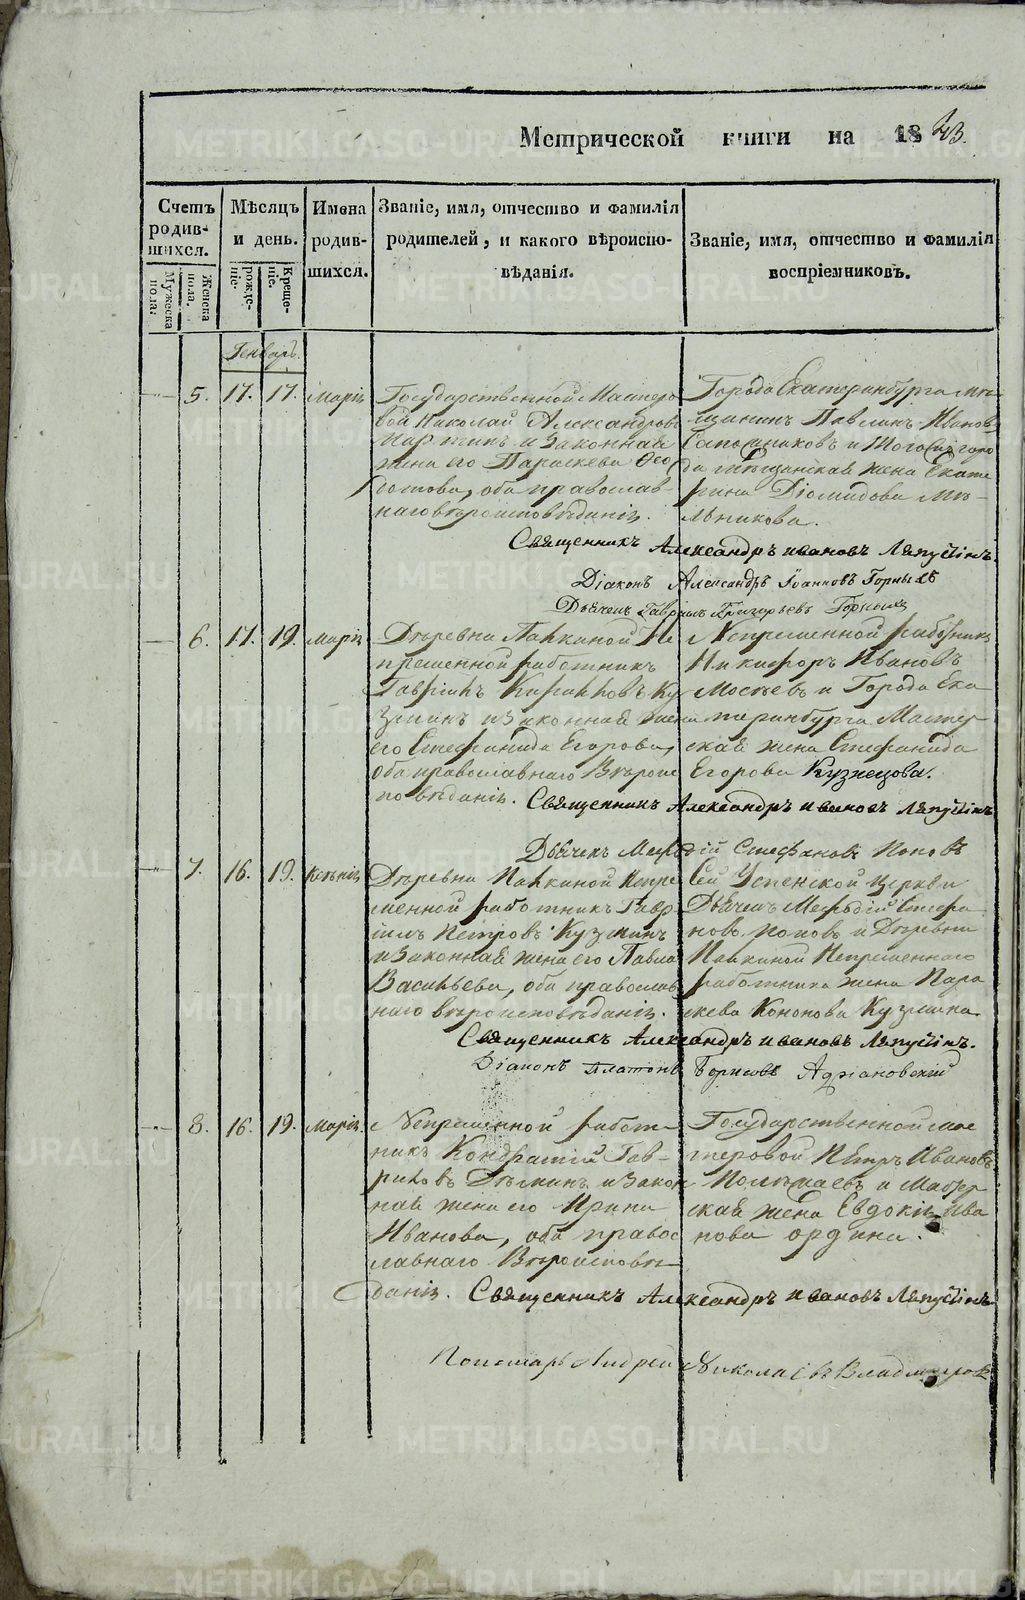 Метрической книги на 1843.
Счетъ родив-шихся.
Мужеска пола.
Женска пола.
Мѣсяцъ и день.
рожде-ніе.
Креще-ніе.
Имена родив-шихся.
Званіе, имя, отчество и фамилія
родителей, и какого вѣроиспо-
вѣданія.
Званіе, имя, отчество и фамилія
воспріемниковъ.
Генварь.
5. 17. 17. Марія
Государственной Мастеро
вой Николай Александровъ
Мартинъ и Законная
жена его Параскева Ѳео
дотова, оба православ-
наго вѣроисповѣданія.
Города Екатеринбурга мѣ
щанинъ Павлинъ Ивановъ
Сапожниковъ и того же горо
да мѣщанская жена Екате
рина Діомидова Мѣ-
льникова.
Священникъ Александръ Ивановъ Ляпустинъ
Діаконъ Александръ Іоанновъ Горныхъ
Дьячекъ Гавріилъ Григорьевъ Горныхъ
6. 17. 19. Марія
Деревни Палкиной Не
премѣнной работникъ
Гавріилъ Кириловъ Ку
зминъ и Законная жена
его Стефанида Егорова,
оба православнаго Вѣроис
повѣданія.
Непремѣнной работникъ
Никифоръ Ивановъ
Мосѣевъ и Города Ека
теринбурга Мастер
ская жена Стефанида
Егорова Кузнецова.
Священникъ Александръ Ивановъ Ляпустинъ
Дьячекъ Меѳодій Стефановъ Поповъ
7. 16. 19. Ксенія
Деревни Палкиной Непре
менной работникъ Гавр
іилъ Петровъ Кузминъ
и Законная жена его Павла
Васильева, оба православ
наго вѣроисповѣданія.
Сей Успенской церкви
Дьячекъ Меѳодій Стефа
новъ Поповъ и Деревни
Палкиной Непременнаго
работника жена Пара
скева Кононова Кузмина
Священникъ Александръ Ивановъ Ляпустинъ.
Діаконъ Платонъ Борисовъ Адріановскій
8. 16. 19. Марія.
Непременной работ-
никъ Кондратій Гав-
риловъ Деминъ и Закон
ная жена его Ирина
Иванова, оба правос
лавнаго Вѣроисповѣ-
данія.
Государственной мас
теровой Пётръ Ивановъ
и Мастер
ская жена Евдокія Ива
нова
Священникъ Александръ Ивановъ Ляпустинъ
Пономарь Андрей Николаевъ Владимировъ
METRIKI.GASO-URAL.RU